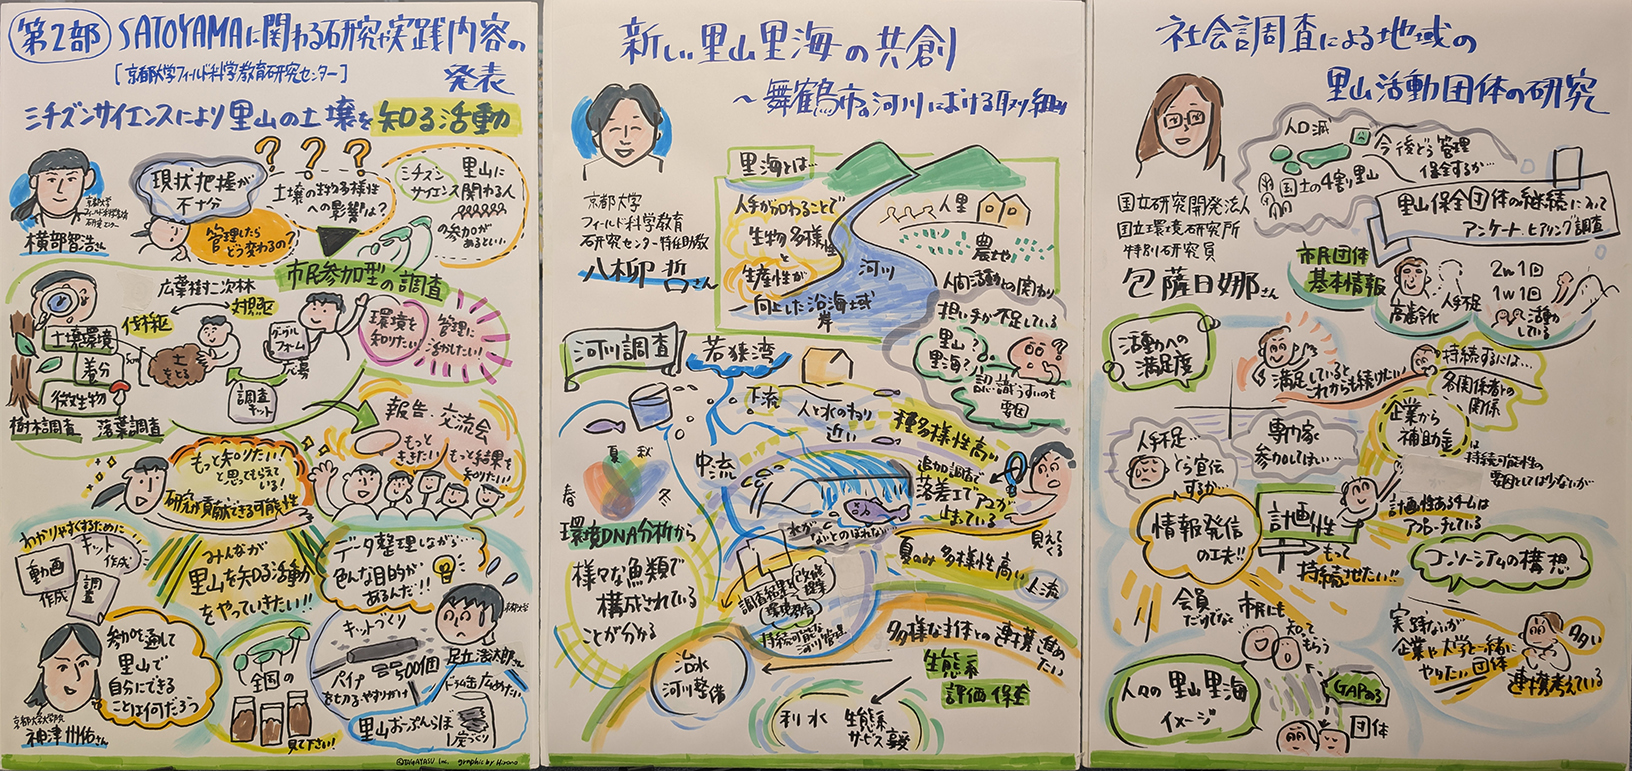 第2部
SATOYAMAに関わる研究や実践内容の
発表
[京都大学フィールド科学教育研究センター]
ミチズンサイエンスにより里山の土壌を知る活動
京都大学
フィールド科学教育
研究センター
現状把握が
不十分
???
土壌の生物多様性
への影響は?
管理したら
どう変わるの?
シチズン
サイエンス
里山に
関わる人
の参加が
あるといい
市民参加型の調査
広葉樹二次林
対照区
伐採区
土壌環境
養分
微生物
樹木調査
落葉調査
5cm
土
をとる
グーグル
フォーム
広場
調査
キット
環境を
知りたい!
管理に
活かしたい!
報告・交流会
もっと
ききたい!
もっと結果を
知りたい!
もっと知りたい!
と思ってもらえて
いる!
研究が貢献できる可能性
わかりやすくするために
キット
作成
動画
作成
調査
みんなが
里山を知る活動
をやっていきたい!!
データ整理しながら…
色んな目的が
あるんだ!!
京都大学
参加を通して
里山で
自分にできる
ことは何だろう
京都大学大学院
神津州佑さん
全国の
見て下さい!
キットづくり
500個
パイプ
を切る・やすりがけ
足立浩太郎さん
ドラム缶広めたい
里山おーぷんらぼ
炭づくり
graphic by Hirono
新しい里山里海の共創
〜舞鶴市の河川における取り組み
京都大学
フィールド科学教育
研究センター特任助教
八柳哲さん
里海とは…
人手が加わることで
生物多様性
と
生産性が
向上した沿海域
岸
人里
農地
河川
人間活動との関わり
担い手が不足している
里山?
里海?
認識うすいのも
要因
河川調査
若狭湾
下流
人と水の関わり
近い
種多様性高い
夏
秋
春
冬
中流
追加調査で
落差工でアユが
止まっている
水が
ないとのぼれない…
見えて
くる
環境DNA分析から
様々な魚類で
構成されている
ことが分かる
夏のみ多様性高い
上流
調査結果を
改修
提案
環境教育
持続可能な
河川管理
多様な主体との連携進め
たい
治水
河川整備
生態系
評価保全
利水
生態系
サービス享受
社会調査による地域の
里山活動団体の研究
国立研究開発法人
国立環境研究所
特別研究員
包薩日娜さん
人口減
今後どう管理
保全するか…
国土の4割里山
里山保全団体の継続について
アンケート、ヒアリング調査
市民団体
基本情報
高齢化
人手不足
2w1回
1w1回
活動
している
活動への
満足度
満足していると
これからも続けたい!
持続するには…
各関係者との
関係
企業から
補助金は
持続可能性の
要因としては少ないが
人手不足…
どう宣伝
するか…
専門家
参加してほしい…
情報発信
の工夫!!
計画性
計画性あるチームは
アプローチしている
もって
持続させたい!!
コンソーシアムの構想
会員
だけでなく
市民にも
知って
もらう
実践ないが
企業や大学と一緒に
やりたい団体
多い
連携考えている
人々の里山里海
イメージ
GAPある
団体